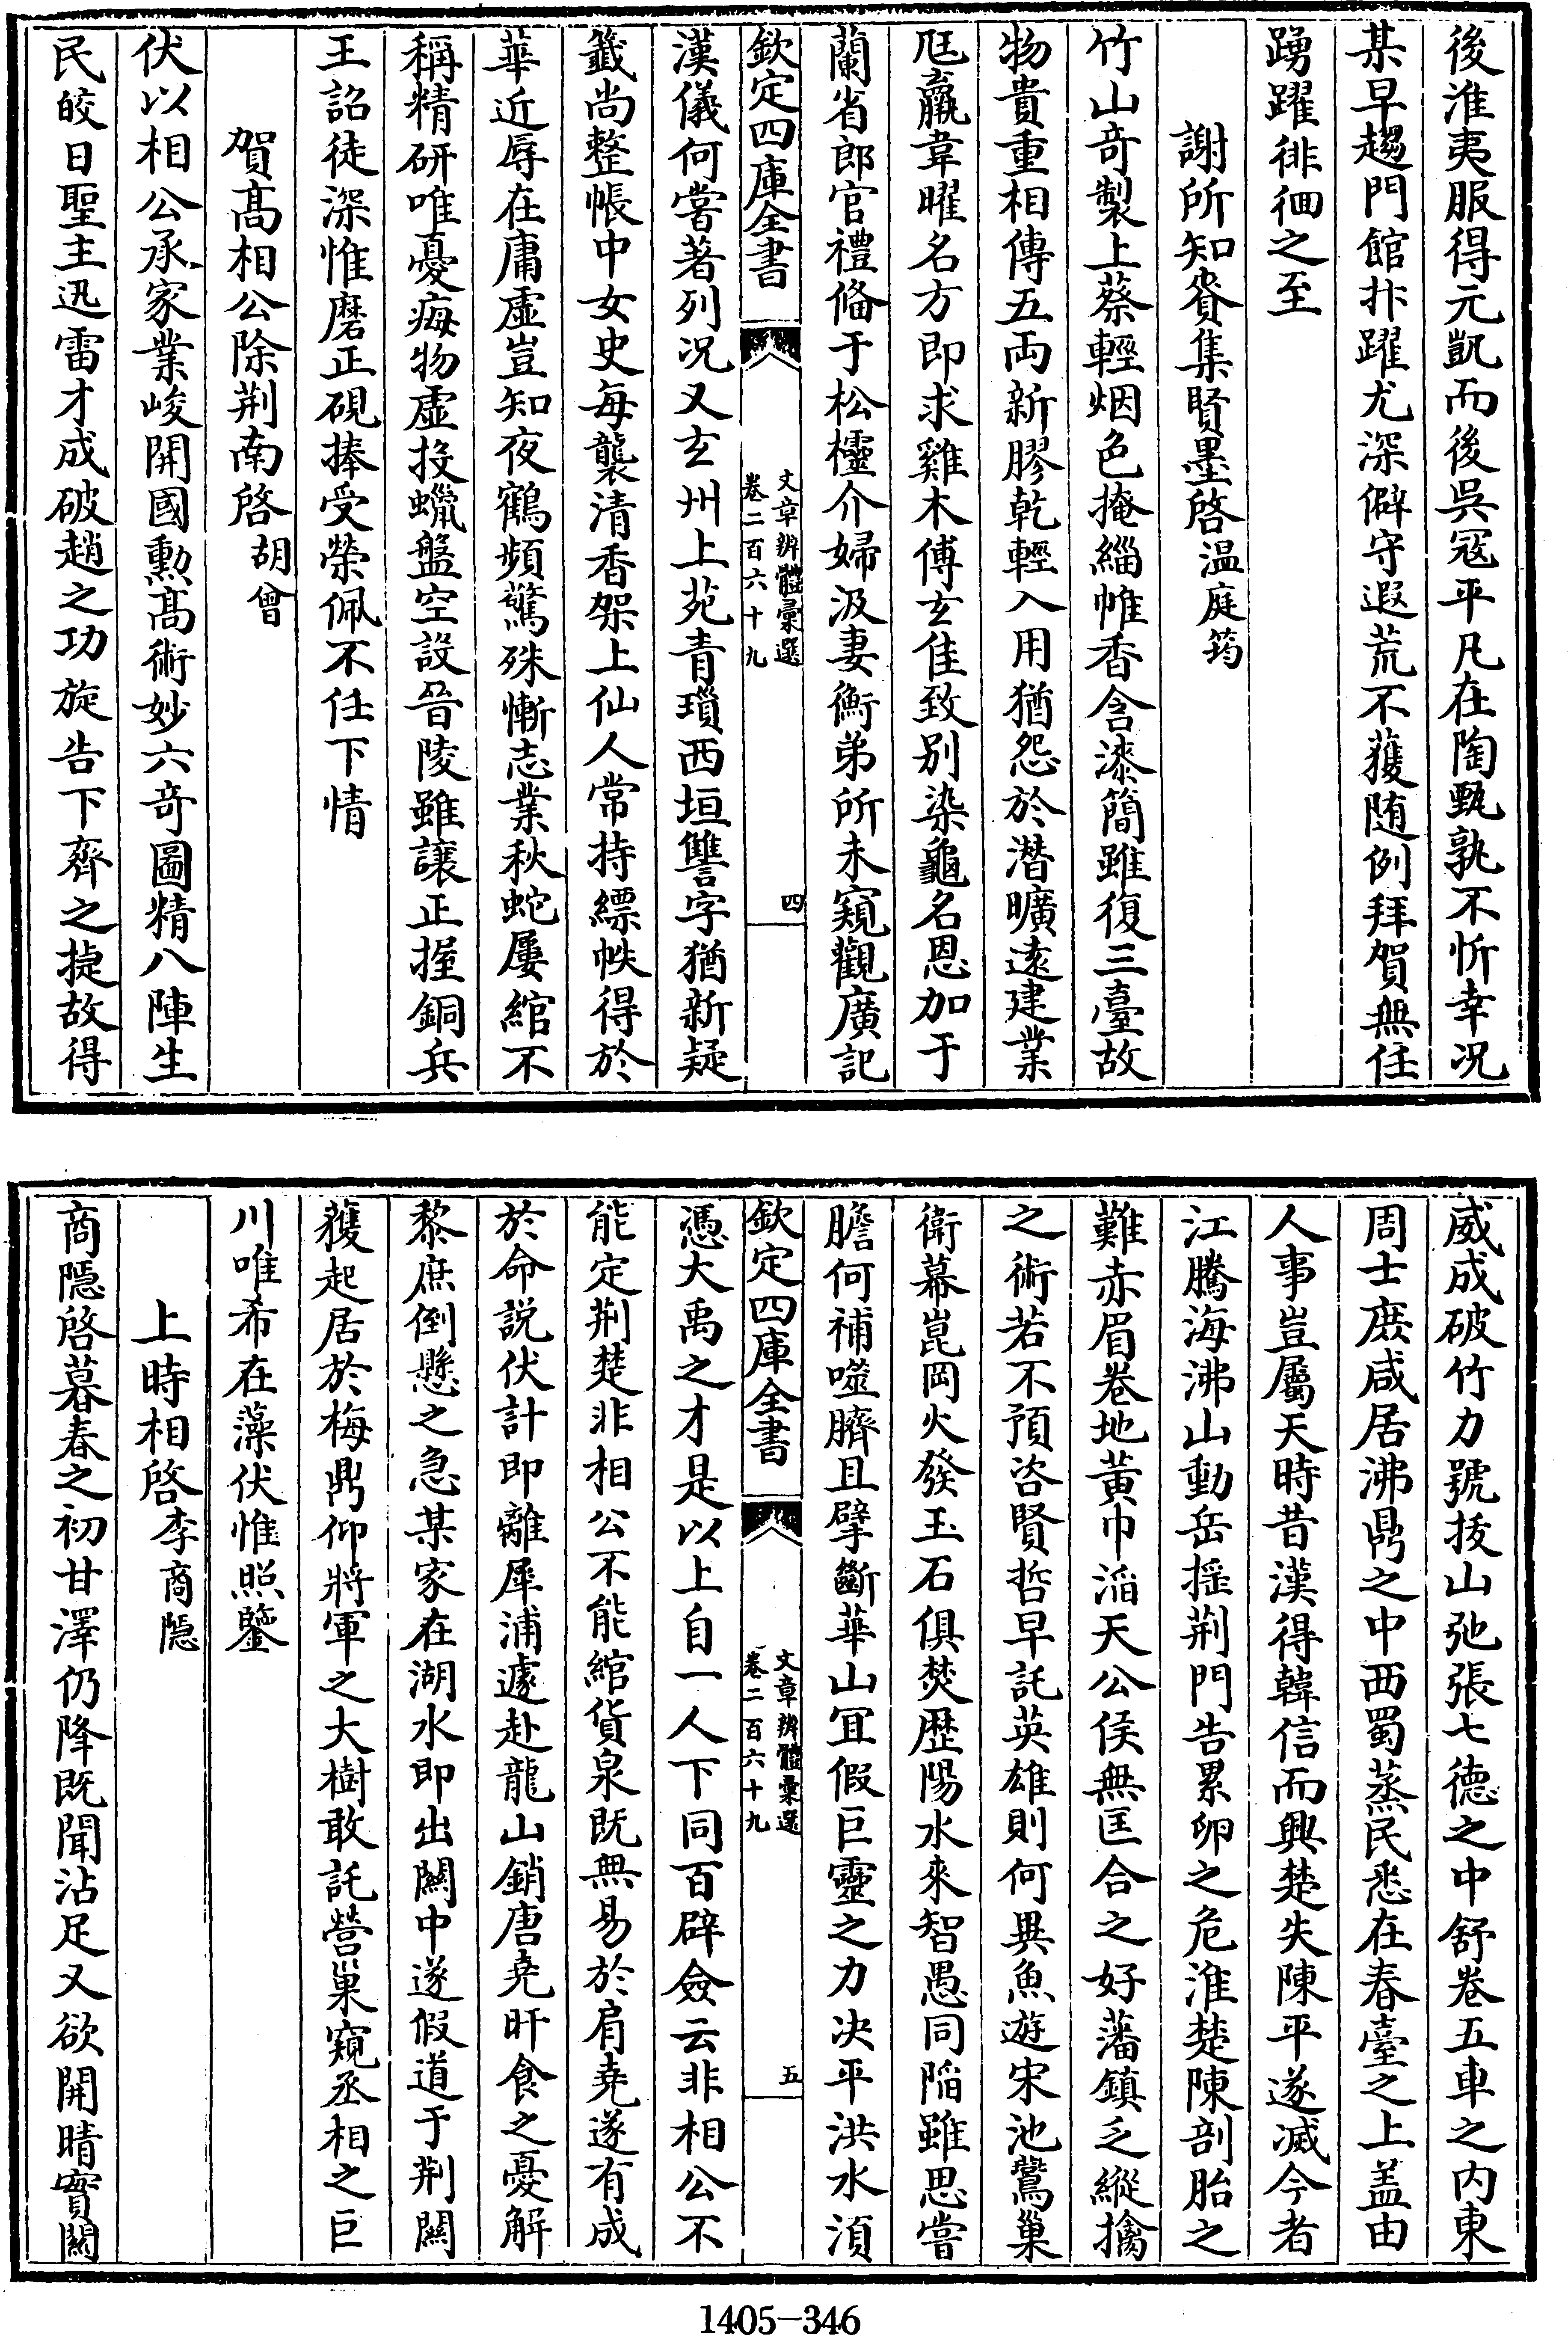 後淮夷服得元凱而後吳冦平凡在陶甄孰不忻幸况
某早趨門館抃躍尤深僻守遐荒不獲随例拜賀無任
踴躍徘徊之至
謝所知賚集賢墨啓温庭筠
竹山奇製上蔡輕烟色掩緇帷香含漆簡雖復三臺故
物貴重相傳五兩新膠乾輕入用猶怨於潜曠逺建業
尫羸韋曜名方即求雞木傅玄佳致别染龜名恩加于
蘭省郎官禮偹于松櫺介婦汲妻衡弟所未窺觀廣記
欽定四庫全書
文章辨體彚選
卷二百六十九
四
漢儀何嘗著列况又玄州上苑青瑣西垣讐字猶新疑
籤尚整帳中女史每襲清香架上仙人常持縹帙得於
華近辱在庸虛豈知夜鶴頻驚殊慚志業秋蛇屢綰不
稱精研唯憂痗物虛投蠟盤空設晉陵雖讓正握銅兵
王詔徒深惟磨正硯捧受榮佩不任下情
賀髙相公除荆南啓胡曾
伏以相公承家業峻開國勲髙術妙六奇圖精八陣生
民皎日聖主迅雷才成破趙之功旋告下齊之㨗故得
威成破竹力號拔山弛張七德之中舒卷五車之内東
周士庶咸居沸鼎之中西蜀蒸民悉在春臺之上盖由
人事豈屬天時昔漢得韓信而興楚失陳平遂滅今者
江騰海沸山動岳揺荆門告累卵之危淮楚陳剖胎之
難赤眉卷地黄巾滔天公侯無匡合之好藩鎮乏縱擒
之術若不預咨賢哲早託英雄則何異魚遊宋池鸎巢
衛幕崑岡火發玉石俱焚歴陽水來智愚同陷雖思嘗
膽何補噬臍且擘斷華山冝假巨靈之力决平洪水湏
欽定四庫全書
文章辨體彚選
卷二百六十九
五
憑大禹之才是以上自一人下同百辟僉云非相公不
能定荆楚非相公不能綰貨泉既無易於肩堯遂有成
於命説伏計即離犀浦遽赴龍山銷唐堯旰食之憂解
黎庶倒懸之急某家在湖水即出關中遂假道于荆關
獲起居於梅鼎仰將軍之大樹敢託營巢窺丞相之巨
川唯希在藻伏惟照鑒
上時相啓李商隠
商隠啓暮春之初甘澤仍降既聞沾足又欲開晴實關
1405-346